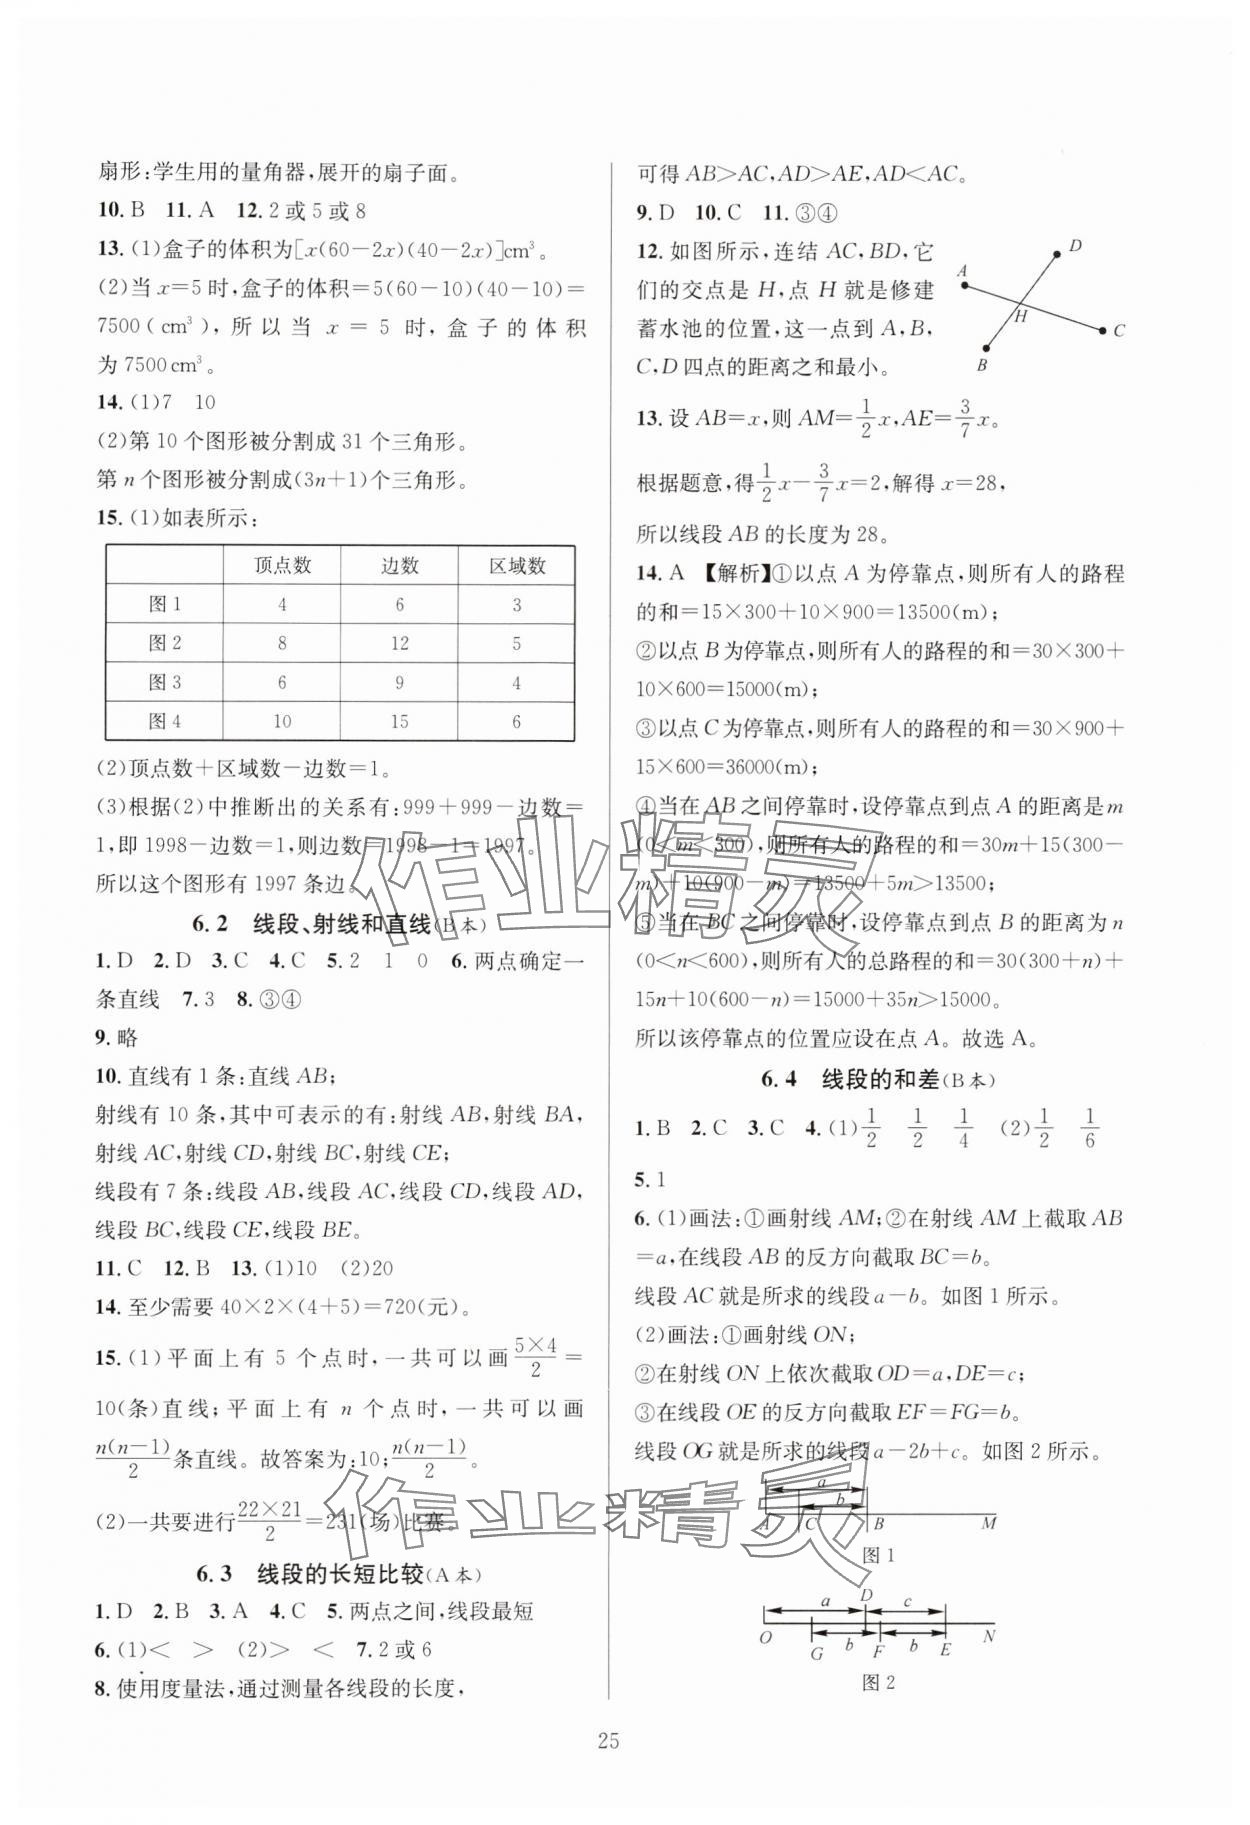 扇形:学生用的量角器,展开的扇子面。
10. B  11. A  12. 2 或 5 或 8
13. (1)盒子的体积为[x(60－2x)(40－2x)]cm³。
(2)当 x＝5 时,盒子的体积＝5(60－10)(40－10)＝
7500(cm³),所以当 x＝5 时,盒子的体积
为 7500 cm³。
14. (1)7  10
(2)第 10 个图形被分割成 31 个三角形。
第 n 个图形被分割成(3n＋1)个三角形。
15. (1)如表所示:
顶点数  边数  区域数
图 1  4  6  3
图 2  8  12  5
图 3  6  9  4
图 4  10  15  6
(2)顶点数＋区域数－边数＝1。
(3)根据(2)中推断出的关系有:999＋999－边数＝
1,即 1998－边数＝1,则边数＝1998－1＝1997。
所以这个图形有 1997 条边。
6.2 线段、射线和直线(B本)
1. D  2. D  3. C  4. C  5. 2  1  0  6. 两点确定一
条直线  7. 3  8. ③④
9. 略
10. 直线有 1 条:直线 AB;
射线有 10 条,其中可表示的有:射线 AB,射线 BA,
射线 AC,射线 CD,射线 BC,射线 CE;
线段有 7 条:线段 AB,线段 AC,线段 CD,线段 AD,
线段 BC,线段 CE,线段 BE。
11. C  12. B  13. (1)10  (2)20
14. 至少需要 40×2×(4＋5)＝720(元)。
15. (1)平面上有 5 个点时,一共可以画 5×4/2＝
10(条)直线;平面上有 n 个点时,一共可以画
n(n－1)/2 条直线。故答案为:10; n(n－1)/2。
(2)一共要进行 22×21/2＝231(场)比赛。
6.3 线段的长短比较(A本)
1. D  2. B  3. A  4. C  5. 两点之间,线段最短
6. (1)＜  ＞  (2)＞  ＜  7. 2 或 6
8. 使用度量法,通过测量各线段的长度,
可得 AB＞AC,AD＞AE,AD＜AC。
9. D  10. C  11. ③④
12. 如图所示,连结 AC,BD,它
们的交点是 H,点 H 就是修建
蓄水池的位置,这一点到 A,B,
C,D 四点的距离之和最小。
A
D
H
B
C
13. 设 AB＝x,则 AM＝1/2 x,AE＝3/7 x。
根据题意,得 1/2 x－3/7 x＝2,解得 x＝28,
所以线段 AB 的长度为 28。
14. A 【解析】①以点 A 为停靠点,则所有人的路程
的和＝15×300＋10×900＝13500(m);
②以点 B 为停靠点,则所有人的路程的和＝30×300＋
10×600＝15000(m);
③以点 C 为停靠点,则所有人的路程的和＝30×900＋
15×600＝36000(m);
④当在 AB 之间停靠时,设停靠点到点 A 的距离是 m
(0＜m＜300),则所有人的路程的和＝30m＋15(300－
m)＋10(900－m)＝13500＋5m＞13500;
⑤当在 BC 之间停靠时,设停靠点到点 B 的距离为 n
(0＜n＜600),则所有人的总路程的和＝30(300＋n)＋
15n＋10(600－n)＝15000＋35n＞15000。
所以该停靠点的位置应设在点 A。故选 A。
6.4 线段的和差(B本)
1. B  2. C  3. C  4. (1)1/2  1/2  1/4  (2)1/2  1/6
5. 1
6. (1)画法:①画射线 AM;②在射线 AM 上截取 AB
＝a,在线段 AB 的反方向截取 BC＝b。
线段 AC 就是所求的线段 a－b。如图 1 所示。
(2)画法:①画射线 ON;
②在射线 ON 上依次截取 OD＝a,DE＝c;
③在线段 OE 的反方向截取 EF＝FG＝b。
线段 OG 就是所求的线段 a－2b＋c。如图 2 所示。
a
b
A  C  B  M
图 1
D
a  c
O  G  b  F  b  E  N
图 2
25
作业精灵
作业精灵